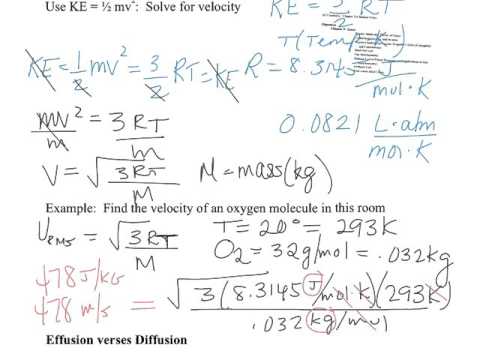 Use KE = ½ mv²: Solve for velocity
KE = 3/2 RT
T (Temp
KE = 1/2 mv² = 3/2 RT = KE
R = 8.3145 J/mol·K
mv²/m = 3RT/m
0.0821 L·atm/mol·K
V = √3RT/M
M = mass (kg)
Example: Find the velocity of an oxygen molecule in this room
URMS = √3RT/M
T = 20° = 293K
O2 = 32g/mol = .032kg
478 J/kg
478 m/s = √3(8.3145 J/mol·K)(293K)/.032 kg/mol
Effusion verses Diffusion